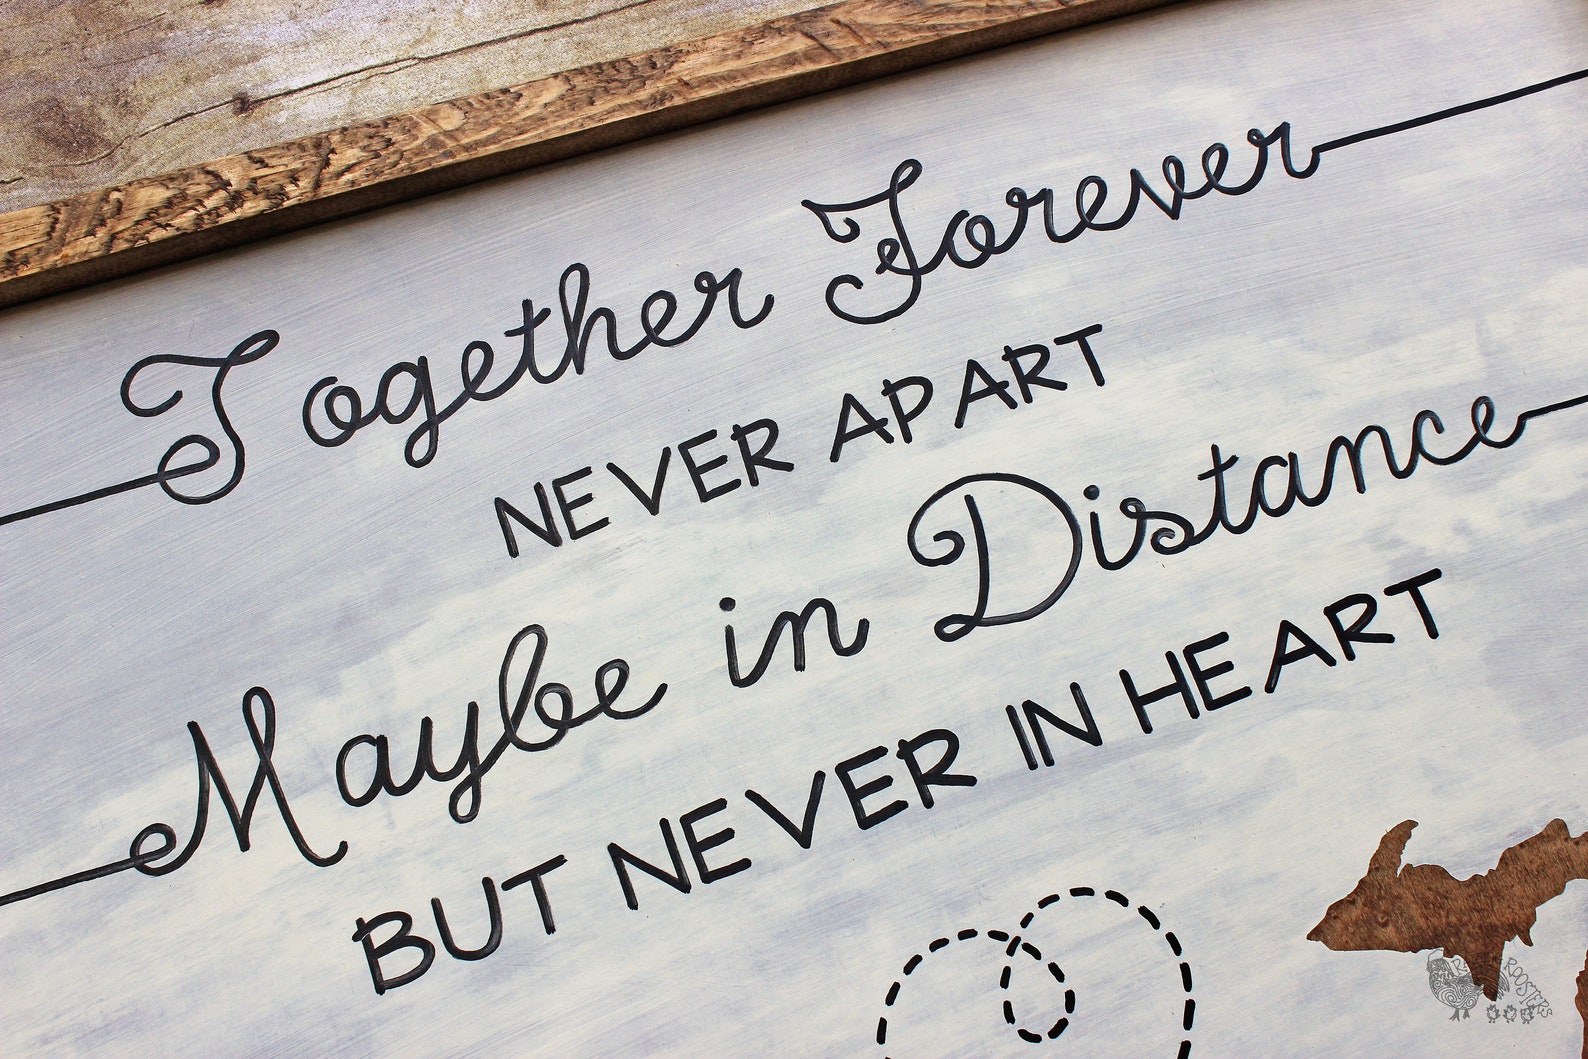 Together Forever
NEVER APART
Maybe in Distance
BUT NEVER IN HEART
ROOSTERS